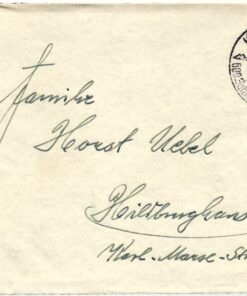 Familie
Horst Uebel
Hildburghaus
Karl-Marx-Str